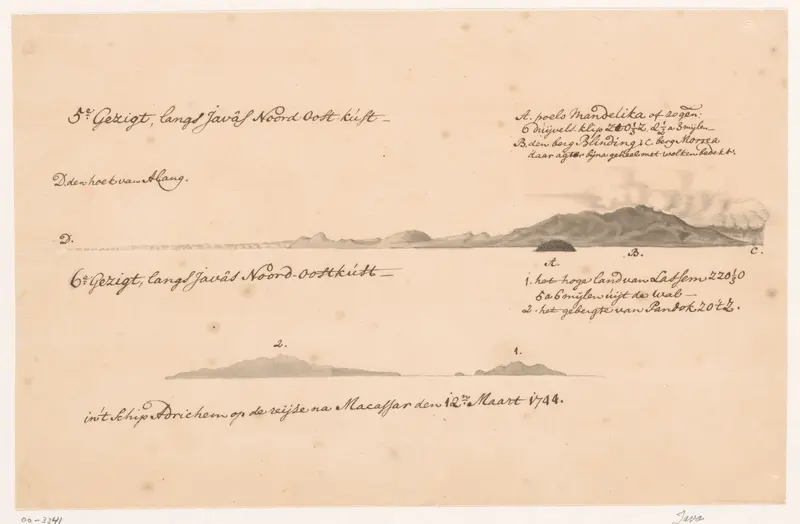 5e Gezigt, langs Javâs Noord Oost kúst
A. poelo Mandelika of zogen:
duijvels klip Z O ⅓ Z, 2½ a 3 mijlen
B. den berg Blinding & C. berg Morrea
daar agter bijna geheel met wolken bedekt.
D. den hoek van Alang.
D.
A. B. C.
6e Gezigt, langs Javâs Noord-oostkúst
1. het hoge land van Lassem Z Z O ⅓ O
5 a 6 mijlen úijt de wal
2. het gebergte van Pandok Z O t Z.
2. 1.
in't Schip Adrichem op de reijse na Macassar den 12en Maart 1744.
00-3241 Java